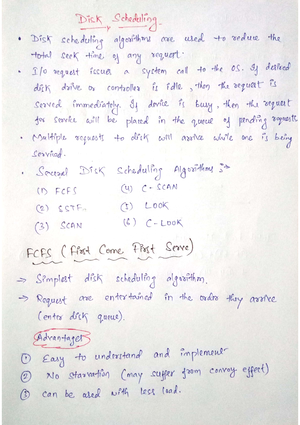 Disk Scheduling
• Disk scheduling algorithms are used to reduce the
total seek time of any request.
• I/O request issues a system call to the OS. If desired
disk drive or controller is idle, then the request is
served immediately. If device is busy, then the request
for service will be placed in the queue of pending requests
• Multiple requests to disk will arrive while one is being
serviced.
• Several Disk Scheduling Algorithms :-
(1) FCFS (4) C-SCAN
(2) SSTF (5) LOOK
(3) SCAN (6) C-LOOK
FCFS (First Come First Serve)
→ Simplest disk scheduling algorithm.
→ Request are entertained in the order they arrive
(enter disk queue).
Advantages
① Easy to understand and implement
② No starvation (may suffer from convoy effect)
③ can be used with less load.